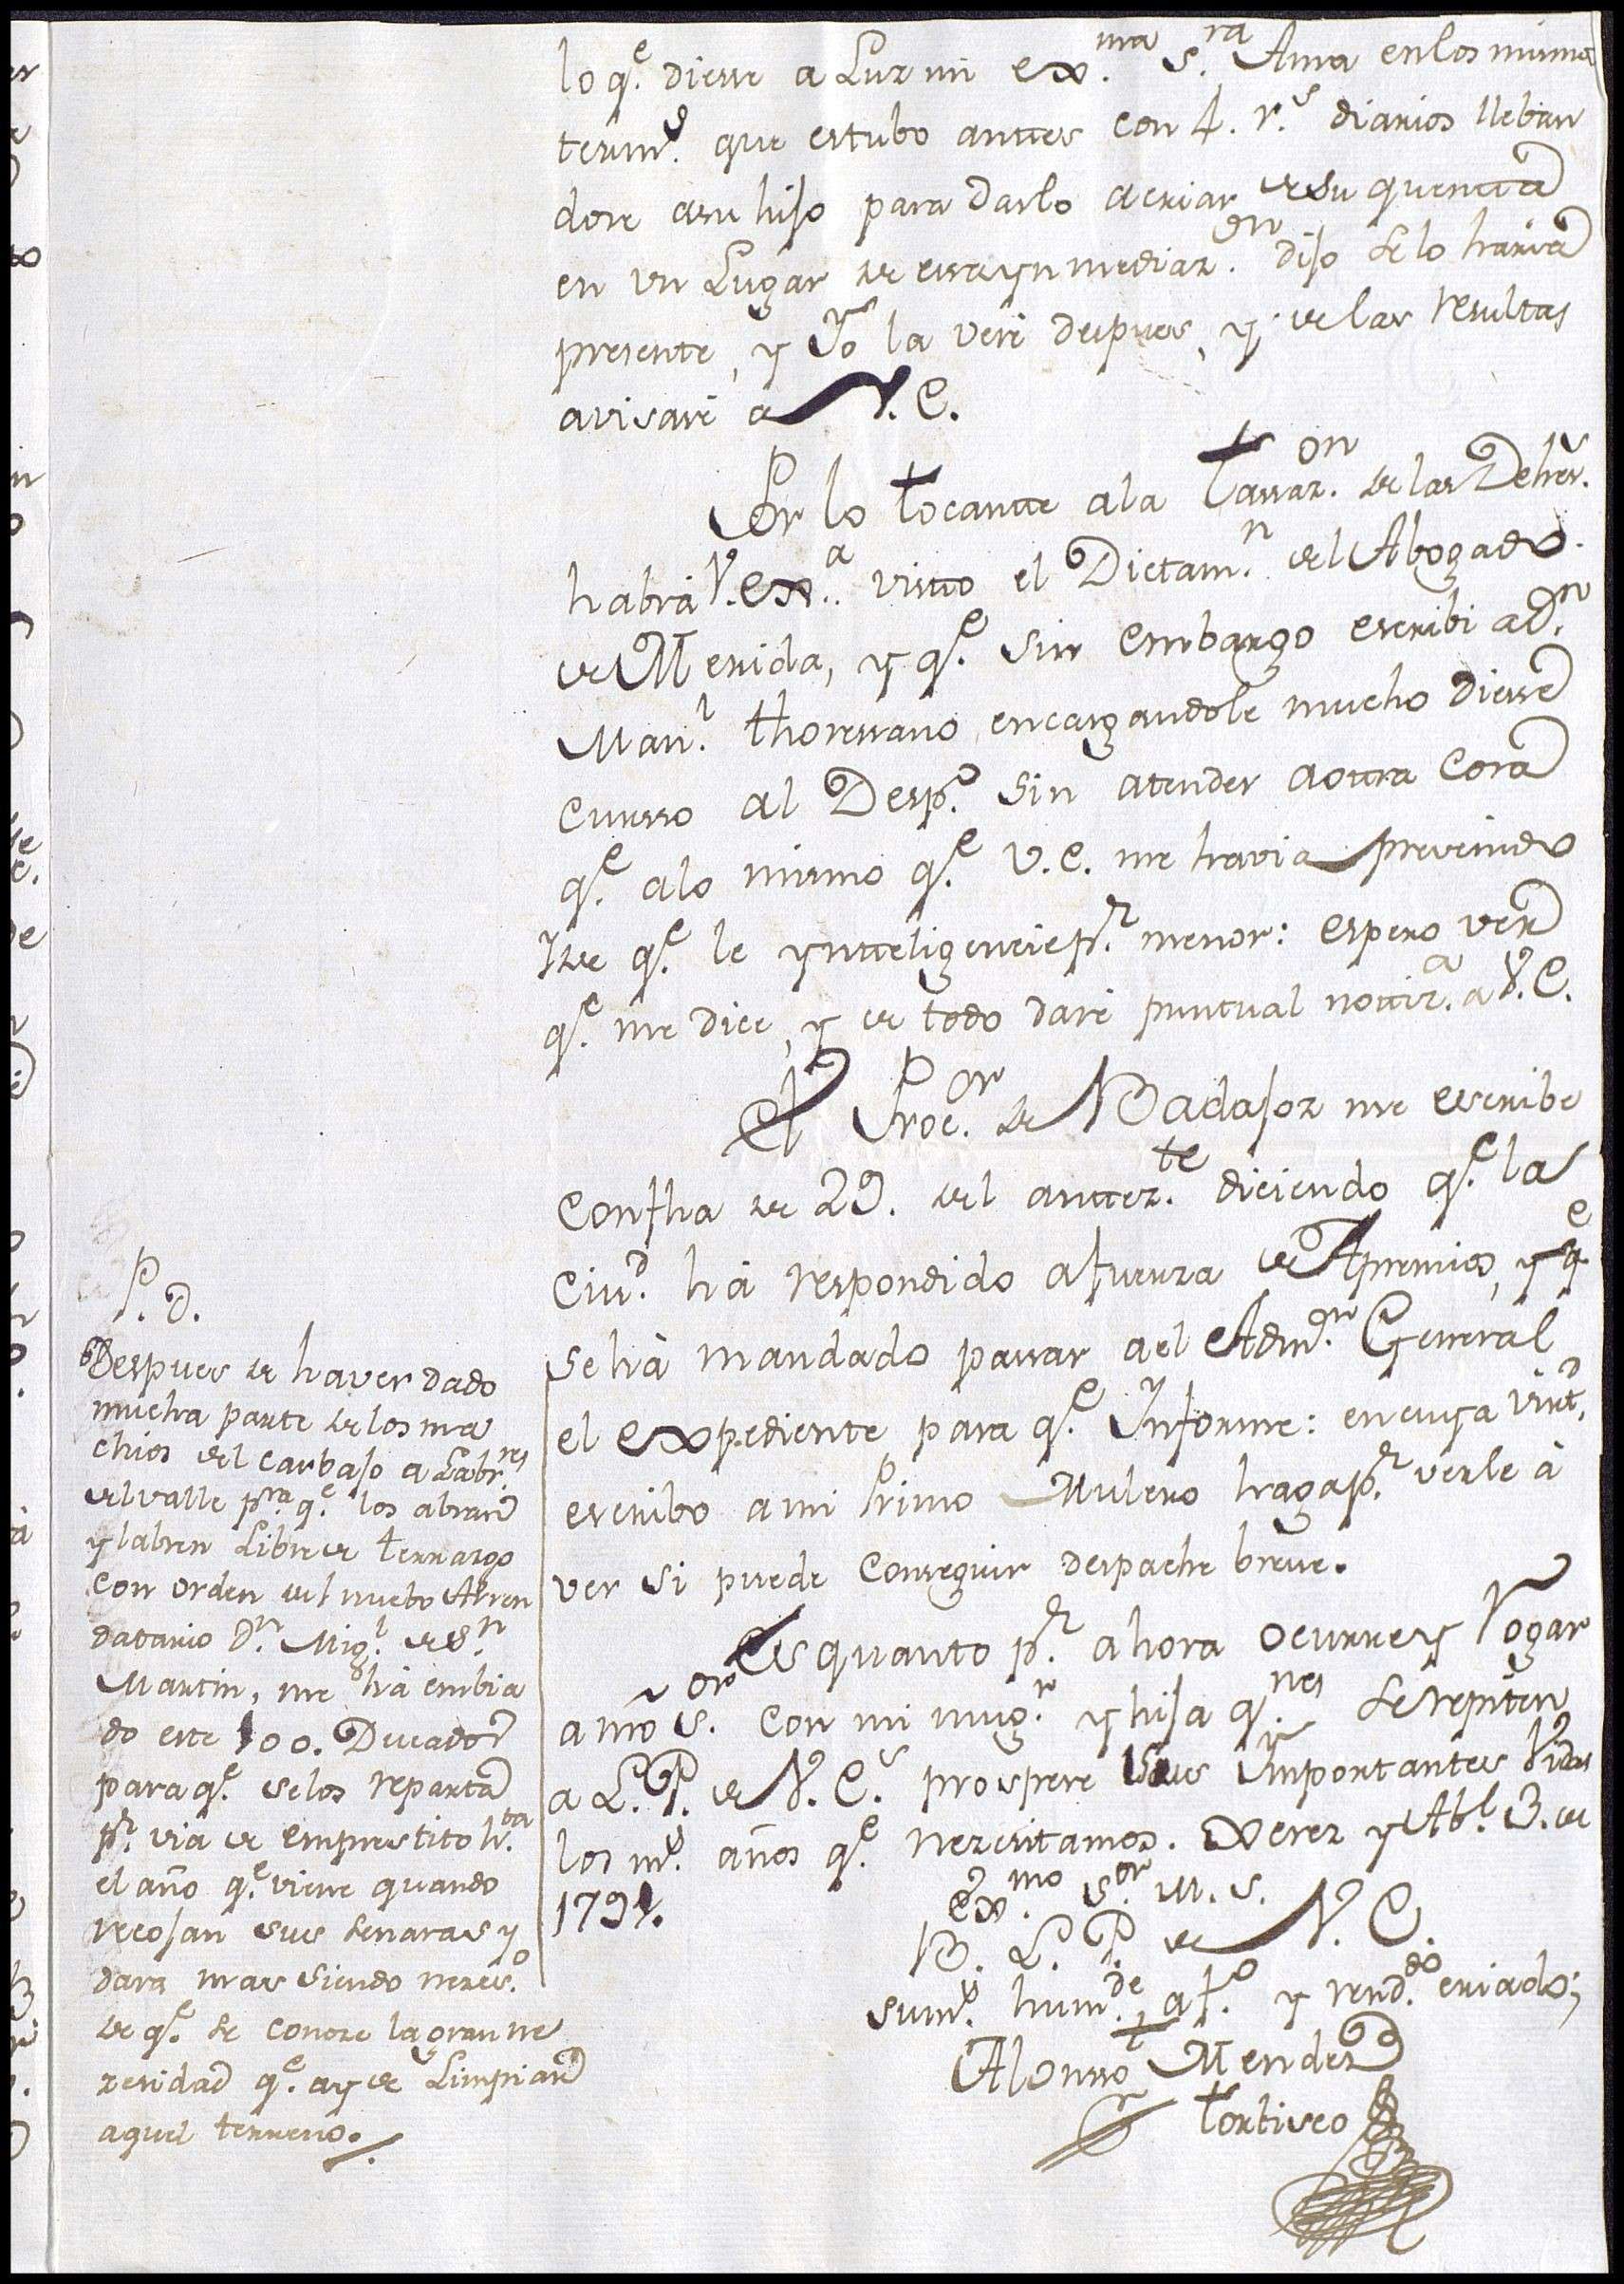 lo q.e diesse a Luz mi ex.ma s.ra Ama en los misma
term.s que estubo anttes con 4. r.s diarios lleban
dose asu hijo para Darlo acriar de su quentta
en un Lugar de essas ynmediaz.on dijo se lo haria
presente, y Yo la veré despues, y de las resultas
avisaré a V. E.
Por lo tocantte ala tassaz.on de las Dehes.s
habrá V. Ex.a vistto el Dictam.n del Abogado
de Merida, y q.e sin embargo escribi a D.n
Man.l thoressano encargandole mucho diesse
cursso al Desp.o sin atender aottra cosa
q.e alo mismo q.e V. E. me havia prevenido
q.e le ynttelig p.r menor: espero ver
q.e me dice, y de todo daré puntual nottiz.a a V. E.
El Proc.or de Badajoz me escribe
con fha de 29. del anttez.te diciendo q.e la
Ciu.d há respondido a fuerza de Apremios, y q.e
se há mandado passar a el Adm.or General
el expediente para q.e Ynforme: en cuya virt.d
escribo a mi Primo Mulero haga p.r verle á
ver si puede conseguir despache breve.
Es quanto p.r ahora ocurre y Rogar
a nrõ s.or con mi mug.r y hija q.nes se repiten
a L. P. de V. E.s prospere sus Ymportantes Vidas
los m.s años q.e nezesitamos. Xerez y Ab.l 3. de
1791.
Ex.mo s.or M. s.
B. L. P. de V. E.
su m.s hum.de af.to y rend.do criado;
Alonsso Mendez
tortisco
P. D.
Despues de haver dado
mucha parte de los ma
chios del carbajo a Labr.res
del valle p.ra q.e los abran
y labren Libre de terrazgo
con orden del nuebo Arren
datario D.n Mig.l de S.n
Martin, me há embia
do este 100. Ducados
para q.e se los reparta
p.r via de emprestito h.ta
el año q.e viene quando
recojan sus senaras y
dara mas siendo nezes.o
de q.e se conoze la gran ne
zesidad q.e ay de Limpiar
aquel terreno.